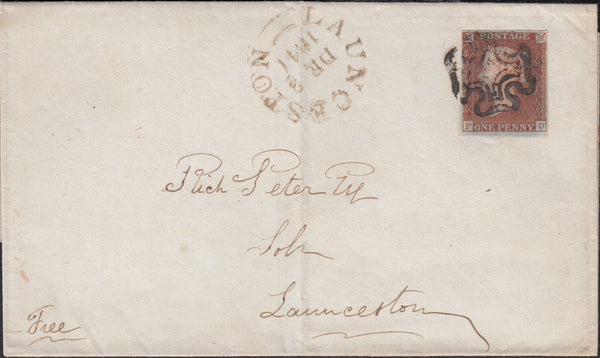 LAUNCESTON
DE
1841
POSTAGE
ONE PENNY
Rich Peter Esq
Solr
Launceston
Free